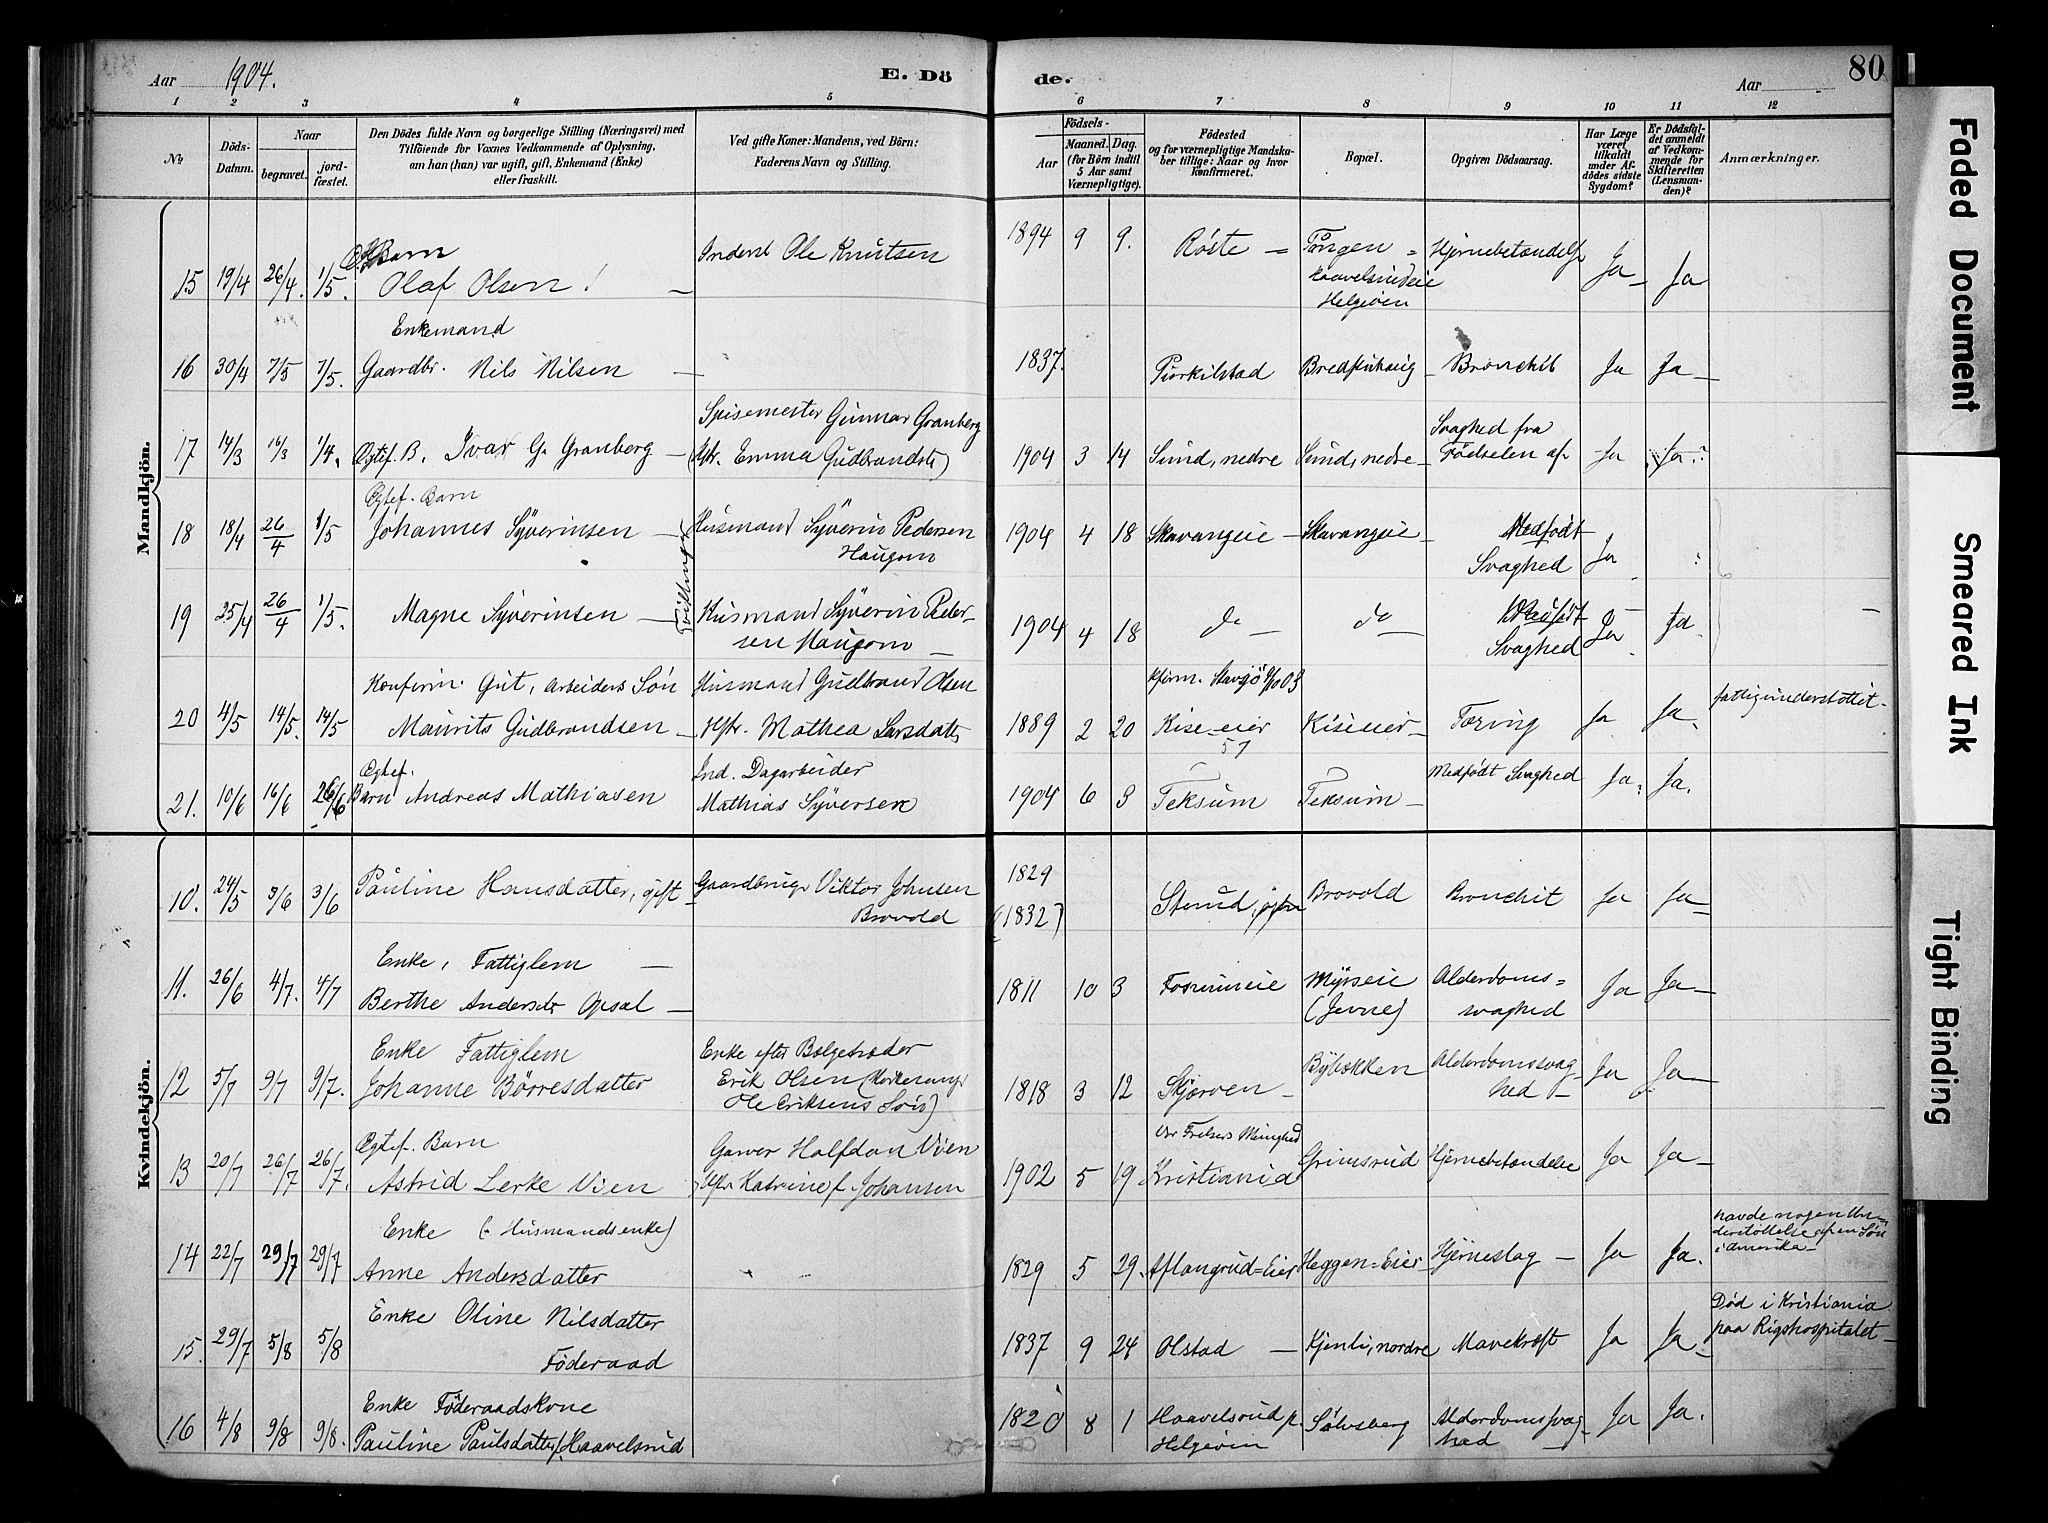 Aar 1904.
E. Dö
de.
Aar
80
1 2 3 4 5 6 7 8 9 10 11 12
No
Döds-Datum.
Naar
begravet.
jord-fæstet.
Den Dödes fulde Navn og borgerlige Stilling (Næringsvei) med
Tilföiende for Voxnes Vedkommende af Oplysning,
om han (han) var ugift, gift, Enkemand (Enke)
eller fraskilt.
Ved gifte Koner: Mandens, ved Börn:
Faderens Navn og Stilling.
Födsels-
Aar
Maaned. Dag.
(for Börn indtil
5 Aar samt
Værnepligtige).
Födested
og for værnepligtige Mandska-
ber tillige: Naar og hvor
konfirmeret.
Bopæl.
Opgiven Dödsaarsag.
Har Læge
været
tilkaldt
under Af-
dödes sidste
Sygdom?
Er Dödsfal-
det anmeldt
af Vedkom-
mende for
Skifteretten
(Lensman-
den)?
Anmærkninger.
Mandkjön.
15 19/4 26/4. 1/5. Barn
Olaf Olsen
Inderst Ole Knutsen
1894 9 9. Röste Helgöen Hjernebetændelse Ja Ja
Enkemand
16 30/4 7/5 7/5. Gaardbr. Nils Nilsen
1837. Bronchit Ja Ja
Spisemester Gunnar Granberg
17 14/3 16/3 1/4. Ægtef. B. Ivar G. Granberg
Hstr. Emma Gudbrandsdtr
1904 3 14 Sund, nedre Sund, nedre
Svaghed fra
Födselen af Ja Ja
Ægtef. Barn
18 18/4 26/4 1/5 Johannes Syverinsen
Tvillinger
Husmand Syverin Pedersen
Haugom
1904 4 18 Skavangeie Skavangeie
Medfödt
Svaghed Ja
19 25/4 26/4 1/5. Magne Syverinsen
Husmand Syverin Peder-
sen Haugom
1904 4 18 do do
Medfödt
Svaghed Ja Ja
Konfirm. Gut, Arbeiders Sön
20 4/5 14/5. 14/5 Maurits Gudbrandsen
Husmand Gudbrand Olsen
Hstr. Mathea Larsdatter
1889 2 20 Kise-eier Kiseeier Tæring Ja Ja
fattigunderstöttet.
Ægtef.
21. 10/6 16/6 26/6 Barn Andreas Mathiasen
Ind. Dagarbeider
Mathias Syversen
1904 6 3 Teksum Teksum Medfödt Svaghed Ja. Ja.
Kvindekjön.
10. 24/5 3/6 3/6 Pauline Hansdatter, gift
Gaardbruger Viktor Johnsen
Brovold
1829
(1832)
Brovold Bronchit Ja Ja
Enke, Fattiglem
11. 26/6 4/7. 4/7 Berthe Andersdtr Opsal
1811 10 3 Myrseie
(Jevne)
Alderdoms=
svaghed Ja Ja
Enke Fattiglem
12 5/7 9/7 9/7. Johanne Börresdatter
Enke efter Bælgetræder
Erik Olsen
Ole Eriksens
1818 3 12 Skjerven Bybækken
Alderdomssvag-
hed Ja Ja
Ægtef. Barn
13 20/7 26/7 26/7. Astrid Lerke Vien
Garver Halfdan Vien
Hstr Katrine f. Johansen
Vor Frelsers Menighed
1902 5 19 Kristiania Grimsrud Hjernebetændelse Ja Ja
Enke (Husmandsenke)
14 22/7 29/7 29/7 Anne Andersdatter
1829 5 29. Aflangrud=Eier Heggen=Eier Hjerneslag Ja Ja.
havde nogen Un-
derstöttelse af en Sön
i Amerika
Enke Oline Nilsdatter
15. 29/7 5/8 5/8
Föderaad
1837 9 24 Olstad Kjenli, nordre Mavekræft Ja Ja.
Död i Kristiania
paa Rigshospitalet
Enke Föderaadskone
16 4/8 9/8 9/8. Pauline Paulsdatter Haavelsrud
1820 8 1 Haavelsrud p.
Helgöen
Sölvsberg
Alderdomssvag-
hed Ja Ja.
Faded Document
Smeared Ink
Tight Binding